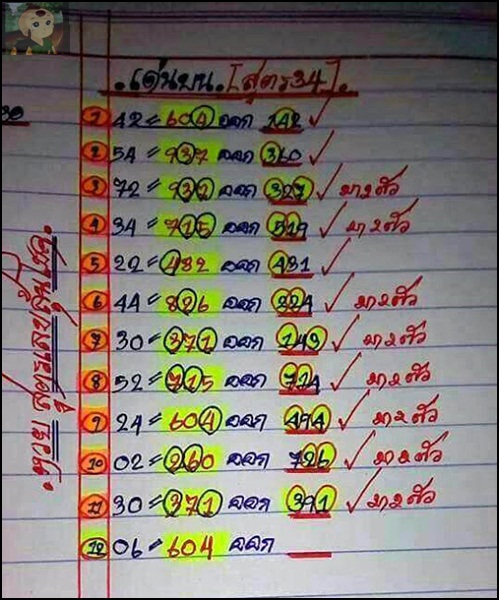 เด่นบน. [สูตร34].
1 42 = 604 ออก 142 ✓
2 54 = 937 ออก 360 ✓
3 72 = 931 ออก 327 ✓ มา2ตัว
4 34 = 715 ออก 519 ✓ มา2ตัว
5 22 = 482 ออก 431 ✓
6 44 = 826 ออก 224 ✓ มา2ตัว
7 30 = 371 ออก 149 ✓ มา2ตัว
8 52 = 715 ออก 724 ✓ มา2ตัว
9 24 = 604 ออก 494 ✓ มา2ตัว
10 02 = 260 ออก 726 ✓ มา2ตัว
11 30 = 371 ออก 391 ✓ มา2ตัว
12 06 = 604 ออก
.หวย สูตรเลขลุ้นโชค.